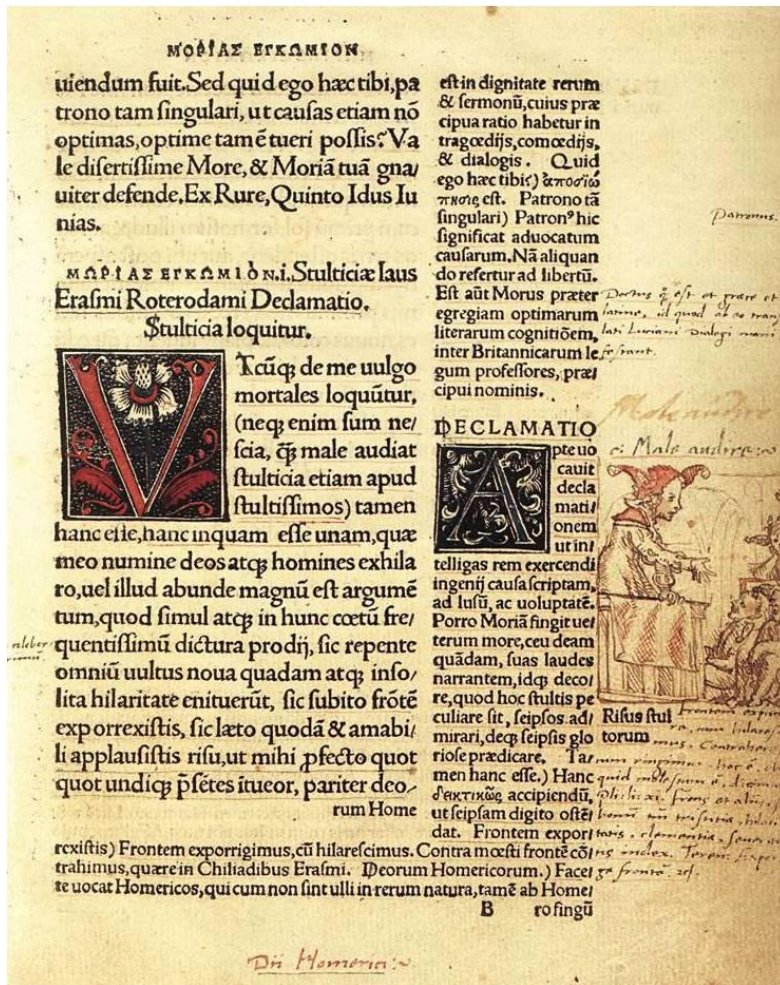 ΜΟΡΙΑΣ ΕΓΚΩΜΙΟΝ
uiendum fuit. Sed quid ego hæc tibi, pa
trono tam singulari, ut causas etiam nõ
optimas, optime tamẽ tueri possis? Va
le disertissime More, & Moriã tuã gna/
uiter defende. Ex Rure, Quinto Idus Iu
nias.
ΜΩΡΙΑΣ ΕΓΚΩΜΙΟΝ.i. Stulticiæ laus
Erasmi Roterodami Declamatio.
Stulticia loquitur.
VTcũq; de me uulgo
mortales loquũtur,
(neq; enim sum ne/
scia, q̃ male audiat
stulticia etiam apud
stultissimos) tamen
hanc esse, hanc inquam esse unam, quæ
meo numine deos atq; homines exhila
ro, uel illud abunde magnũ est argumẽ
tum, quod simul atq; in hunc cœtũ fre/
quentissimũ dictura prodij, sic repente
omniũ uultus noua quadam atq; inso/
lita hilaritate enituerũt, sic subito frõtẽ
exporrexistis, sic læto quodã & amabi/
li applausistis risu, ut mihi ꝓfecto quot
quot undiq; p̃sẽtes ĩtueor, pariter deo/
rum Home
est in dignitate rerum
& sermonũ, cuius præ
cipua ratio habetur in
tragœdijs, comœdijs,
& dialogis. Quid
ego hæc tibi?) ἀποσιώ
πησις est. Patrono tã
singulari) Patronꝰ hic
significat aduocatum
causarum. Nã aliquan
do refertur ad libertũ.
Est aũt Morus præter
egregiam optimarum
literarum cognitiõem,
inter Britannicarum le/
gum professores, præ/
cipui nominis.
DECLAMATIO
Apte uo
cauit
decla
mati/
onem
ut in/
telligas rem exercendi
ingenij causa scriptam,
ad lusũ, ac uoluptatẽ.
Porro Moriã fingit ue/
terum more, ceu deam
quãdam, suas laudes
narrantem, idq; deco/
re, quod hoc stultis pe
culiare sit, seipsos ad/
mirari, deq; seipsis glo
riose prædicare. Ta/
men hanc esse.) Hanc
δεικτικῶς accipiendũ,
ut seipsam digito ostẽ/
dat. Frontem expor/
rexistis) Frontem exporrigimus, cũ hilarescimus. Contra mœsti frontẽ cõ/
trahimus, quære in Chiliadibus Erasmi. Deorum Homericorum.) Face/
te uocat Homericos, qui cum non sint ulli in rerum natura, tamẽ ab Home/
B ro fingũ
Patronus.
Doctus q̃ est et græce et
latine, id quod ab eo tran
lati Luciani Dialogi mani
festant.
Male audire
.c. Male audire
Risus stul
torum
Dii Homerici